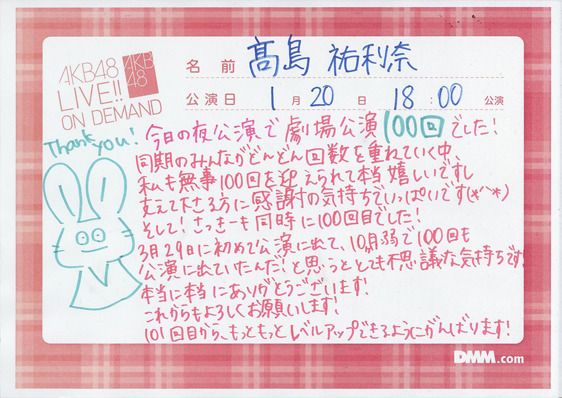 AKB48
LIVE!!
ON DEMAND
AKB
48
名前 髙島 祐利奈
公演日 1月20日 18:00 公演
Thank you!
今日の夜公演で劇場公演100回でした!
同期のみんながどんどん回数を重ねていく中、
私も無事100回を迎えられて本当嬉しいですし
支えて下さる方に感謝の気持ちでいっぱいです(*´˘`*)
そして!さっきーも同時に100回目でした!
3月29日に初めて公演に出て、10ヶ月弱で100回も
公演に出ていたんだ!と思うととても不思議な気持ちです!
本当に本当にありがとうございます!
これからもよろしくお願いします!
101回目から、もっともっとレベルアップできるようにがんばります!
DMM.com